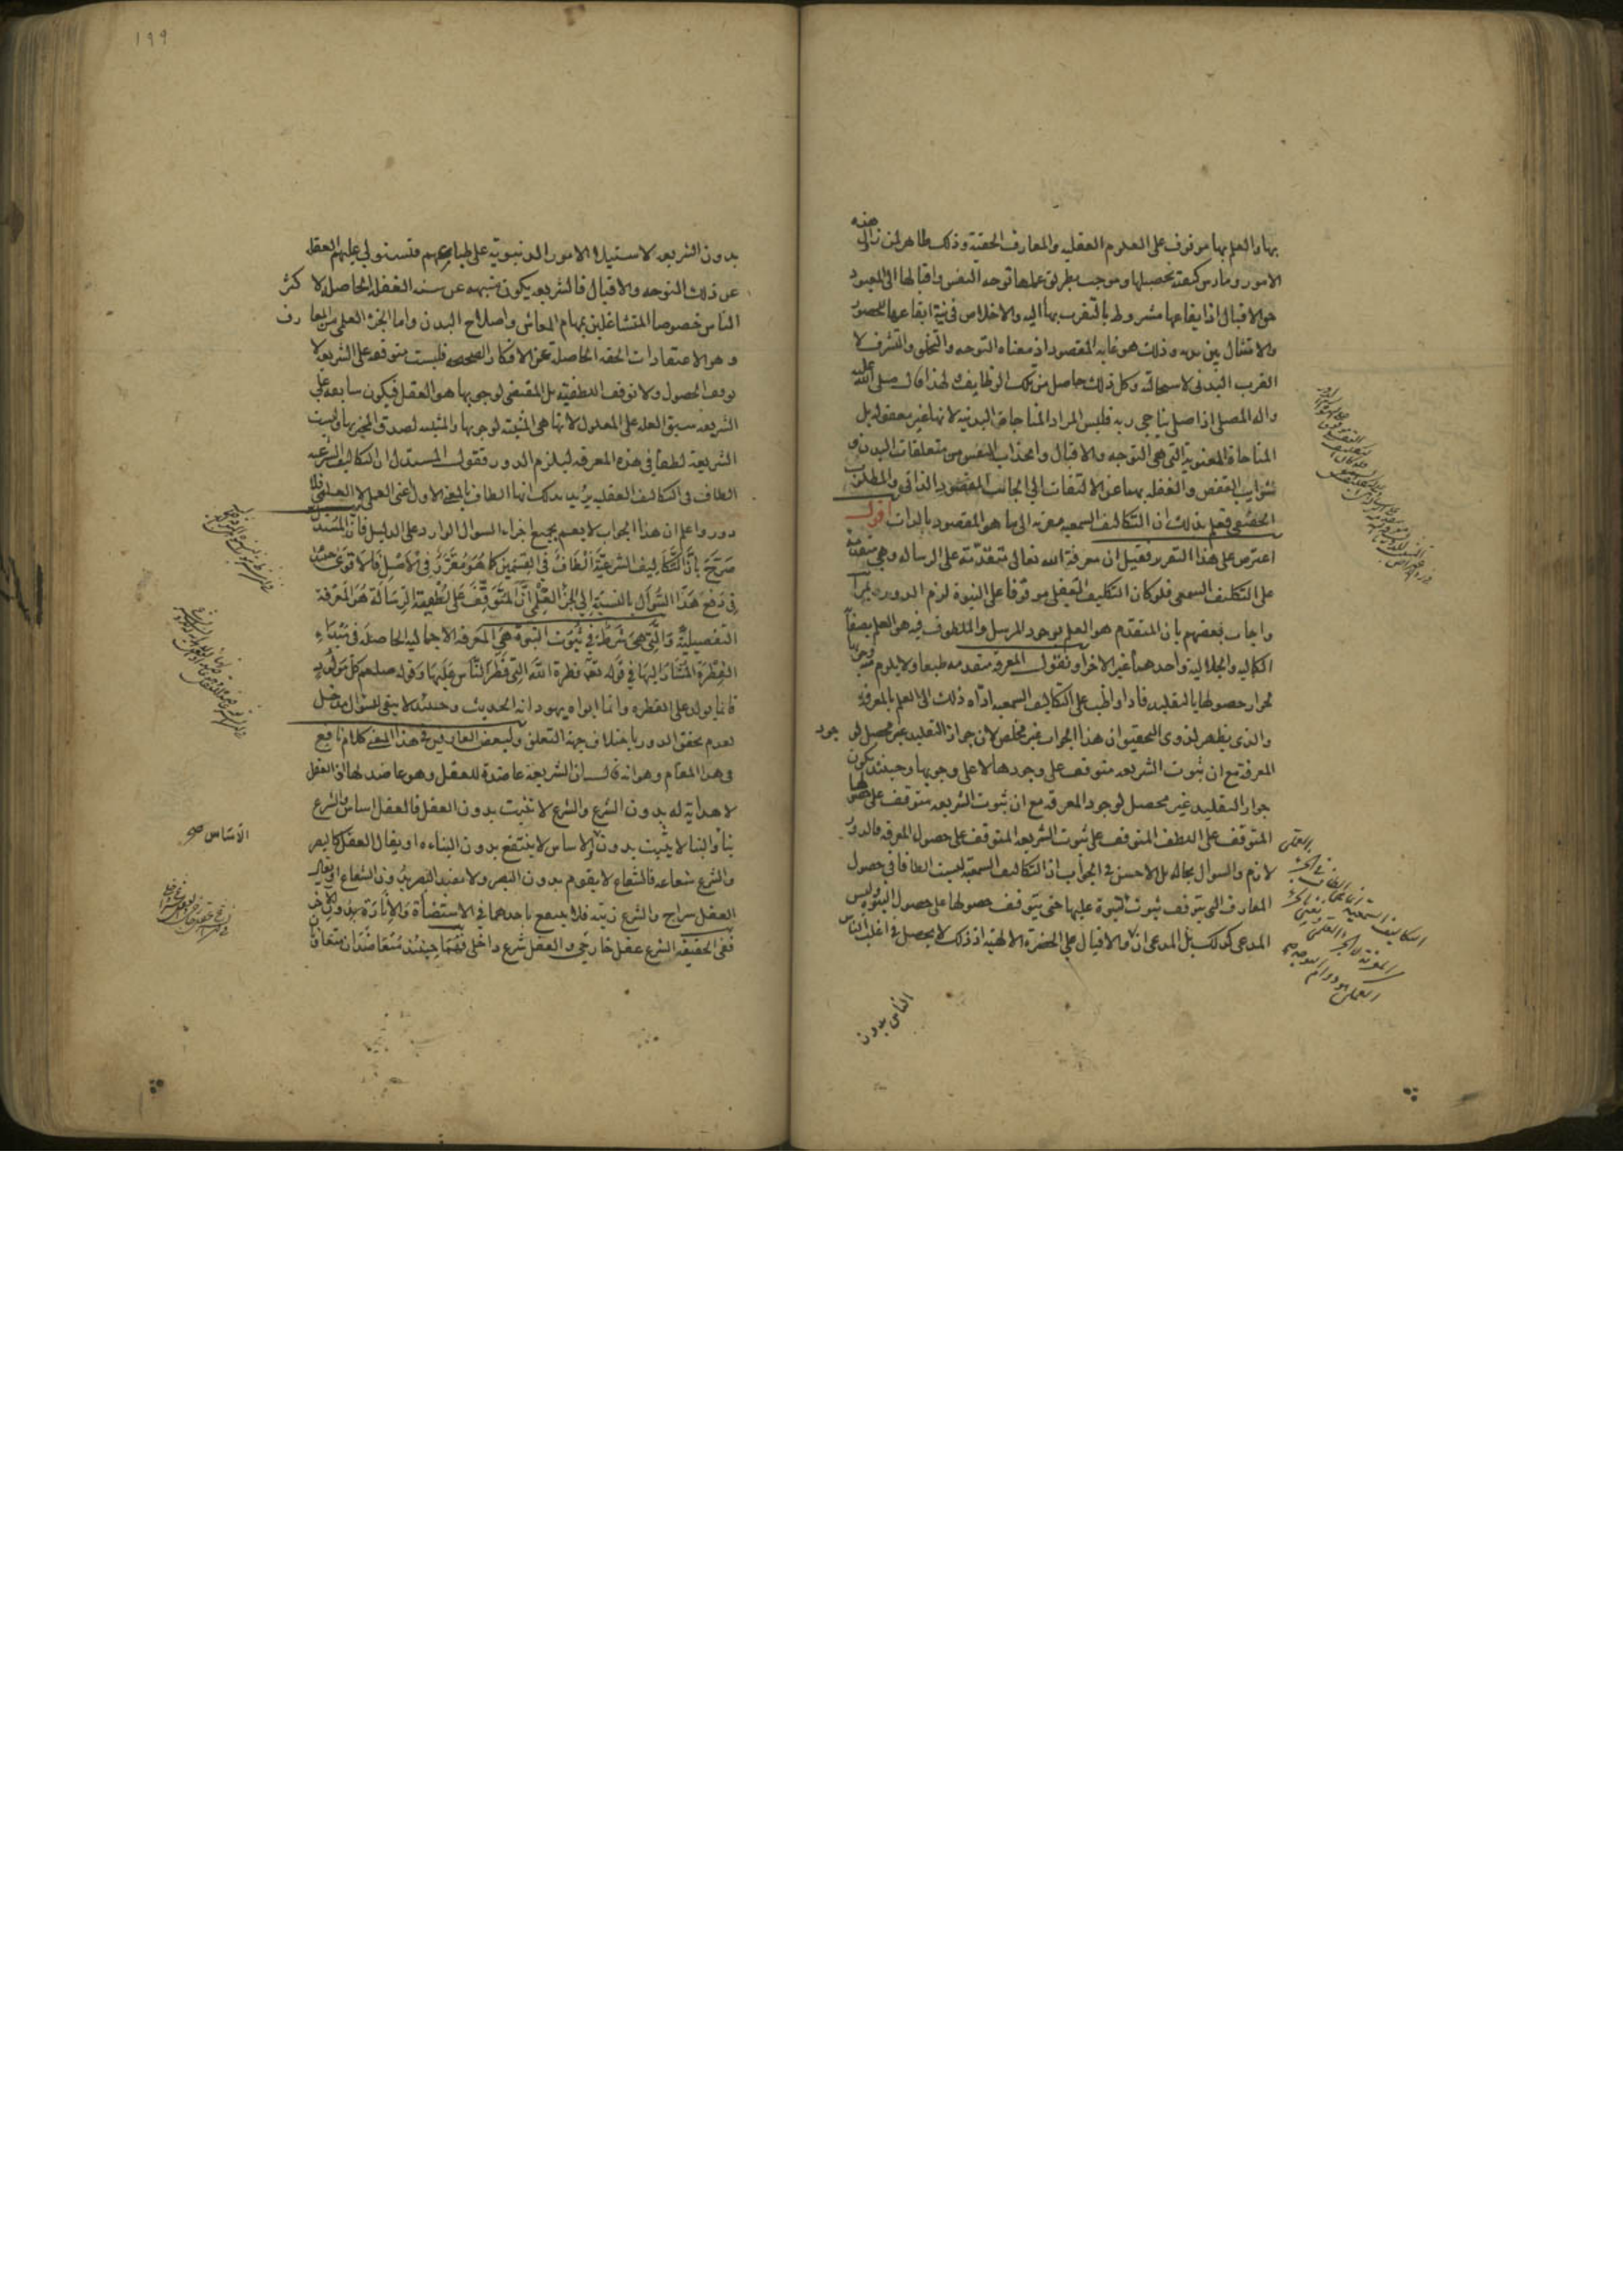 بها والعلم بها موقوف على العلوم العقلية والمعارف الحقية وذلك ظاهر لمن زاول هذه
الامور ومارس كيفية تحصيلها وموجب بطريق عملها توجه النفس واقبالها الى المعبود
حق الاقبال اذ ايقاعها مشروط بالتقرب بها اليه والاخلاص في نية ايقاعها للحضور
والامتثال بين يديه وذلك هو غاية المقصود اذ معناه التوجه والتخلق والتشرف لا
القرب البدني لاستحالته وكل ذلك حاصل من تلك الوظايف ولهذا قال صلى الله عليه
واله المصلي اذا صلى يناجي ربه فليس المراد المناجاة البدنية لانها غير معقولة بل
المناجاة المعنوية التي هي التوجه والاقبال وانجذاب النفس من متعلقات البدن و
شوايب النقص والغفلة بها عن الالتفات الى الجانب المقصود الذاتي والمطلوب
الحقيقي فعلم بذلك ان التكاليف السمعية مقربة الى ما هو المقصود بالذات اقول
اعترض على هذا التقرير فقيل ان معرفة الله تعالى متقدمة على الرسالة وهي متقدمة
على التكليف السمعي فلو كان التكليف العقلي موقوفا على النبوة لزم الدور
واجاب بعضهم بان المتقدم هو العلم بوجود المرسل والملطوف فيه هو العلم بصفاته
الكمالية والجلالية واحدهما غير الاخر او نقول المعرفة متقدمة طبعا ولا يلزم منه وجوبا
لجواز حصولها بالتقليد فاذا واظب على التكاليف السمعية اداه ذلك الى العلم بالمعرفة
والذي يظهر لذوي التحقيق ان هذا الجواب غير مخلص لان جواز التقليد غير محصل لوجود
المعرفة مع ان ثبوت الشريعة متوقف على وجودها لا على وجوبها وحينئذ يكون
جواز التقليد غير محصل لوجود المعرفة مع ان ثبوت الشريعة متوقف على حصولها
المتوقف على اللطف المتوقف على ثبوت الشريعة المتوقف على حصول المعرفة فالدور
لازم والسوال بحاله بل الاحسن في الجواب ان التكاليف السمعية ليست الطافا في حصول
المعارف التي يتوقف ثبوت النبوة عليها حتى يتوقف حصولها على حصول النبوة وليس
المدعى كذلك بل المدعى ان والاقبال على الحضرة الالهية اذ ذلك لا يحصل في اغلب الناس
الناس بدون
١٩٩
بدون الشريعة لاستيلاء الامور الدنيوية على طباعهم فتستولي عليهم الغفلة
عن ذلك التوجه والاقبال فالشريعة يكون منبهه عن سنة الغفلة الحاصلة لاكثر
الناس خصوصا المتشاغلين بمهام المعاش واصلاح البدن واما الجزء العلمي من المعارف
وهو الاعتقادات الحقة الحاصلة عن الافكار الصحيحة فليست متوقفة على الشريعة لا
توقف الحصول ولا توقف اللطفية بل المقتضي لوجوبها هو العقل فيكون سابقة على
الشريعة سبق العلة على المعلول لانها هي المثبتة لوجوبها والمثبتة لصدق المخبر بها وليست
الشريعة لطفا في هذه المعرفة ليلزم الدور فقول المستدل ان التكاليف الشرعية
الطاف في التكاليف العقلية يريد بذلك انها الطاف بالمعنى الاول اعني العملي لا العلمي فلا
دور واعلم ان هذا الجواب لا يعم بجميع اجزاء السوال الوارد على الدليل فان المستدل
صرح بان التكاليف الشرعية الطاف في القسمين كما هو مقرر في الاصل فالاقوى حينئذ
في دفع هذا السؤال بالنسبة الى الجزء العلمي ان المتوقف على لطفية الرسالة هو المعرفة
التفصيلية والتي هي شرط في ثبوت النبوة هي المعرفة الاجمالية الحاصلة في مبداء
الفطرة المشار اليها في قوله تعه فطرة الله التي فطر الناس عليها وقوله صلعم كل مولود
فانما يولد على الفطرة وانما ابواه يهودانه الحديث وحينئذ لا يبقى للسؤال مدخل
لعدم تحقق الدور باختلاف جهة التعلق ولبعض العارفين في هذا المعنى كلام نافع
في هذا المقام وهو انه قال لسان الشريعة عاضدة للعقل وهو عاضد لها اذ العقل
لا هداية له بدون الشرع والشرع لا تثبت بدون العقل فالعقل اساس والشرع
بناء والبنا لا يثبت بدون الاساس لا ينتفع بدون البناء او يقال العقل كالبصر
والشرع شعاعه فالشعاع لا يقوم بدون البصر ولا يفيد البصر بدون الشعاع او يقال
العقل سراج والشرع زيته فلا ينتفع باحدهما في الاستضاءة والانارة بدون الاخر
ففي الحقيقة الشرع عقل خارجي والعقل شرع داخلي فهما حينئذ متعاضدان متعاونان
الاساس صح